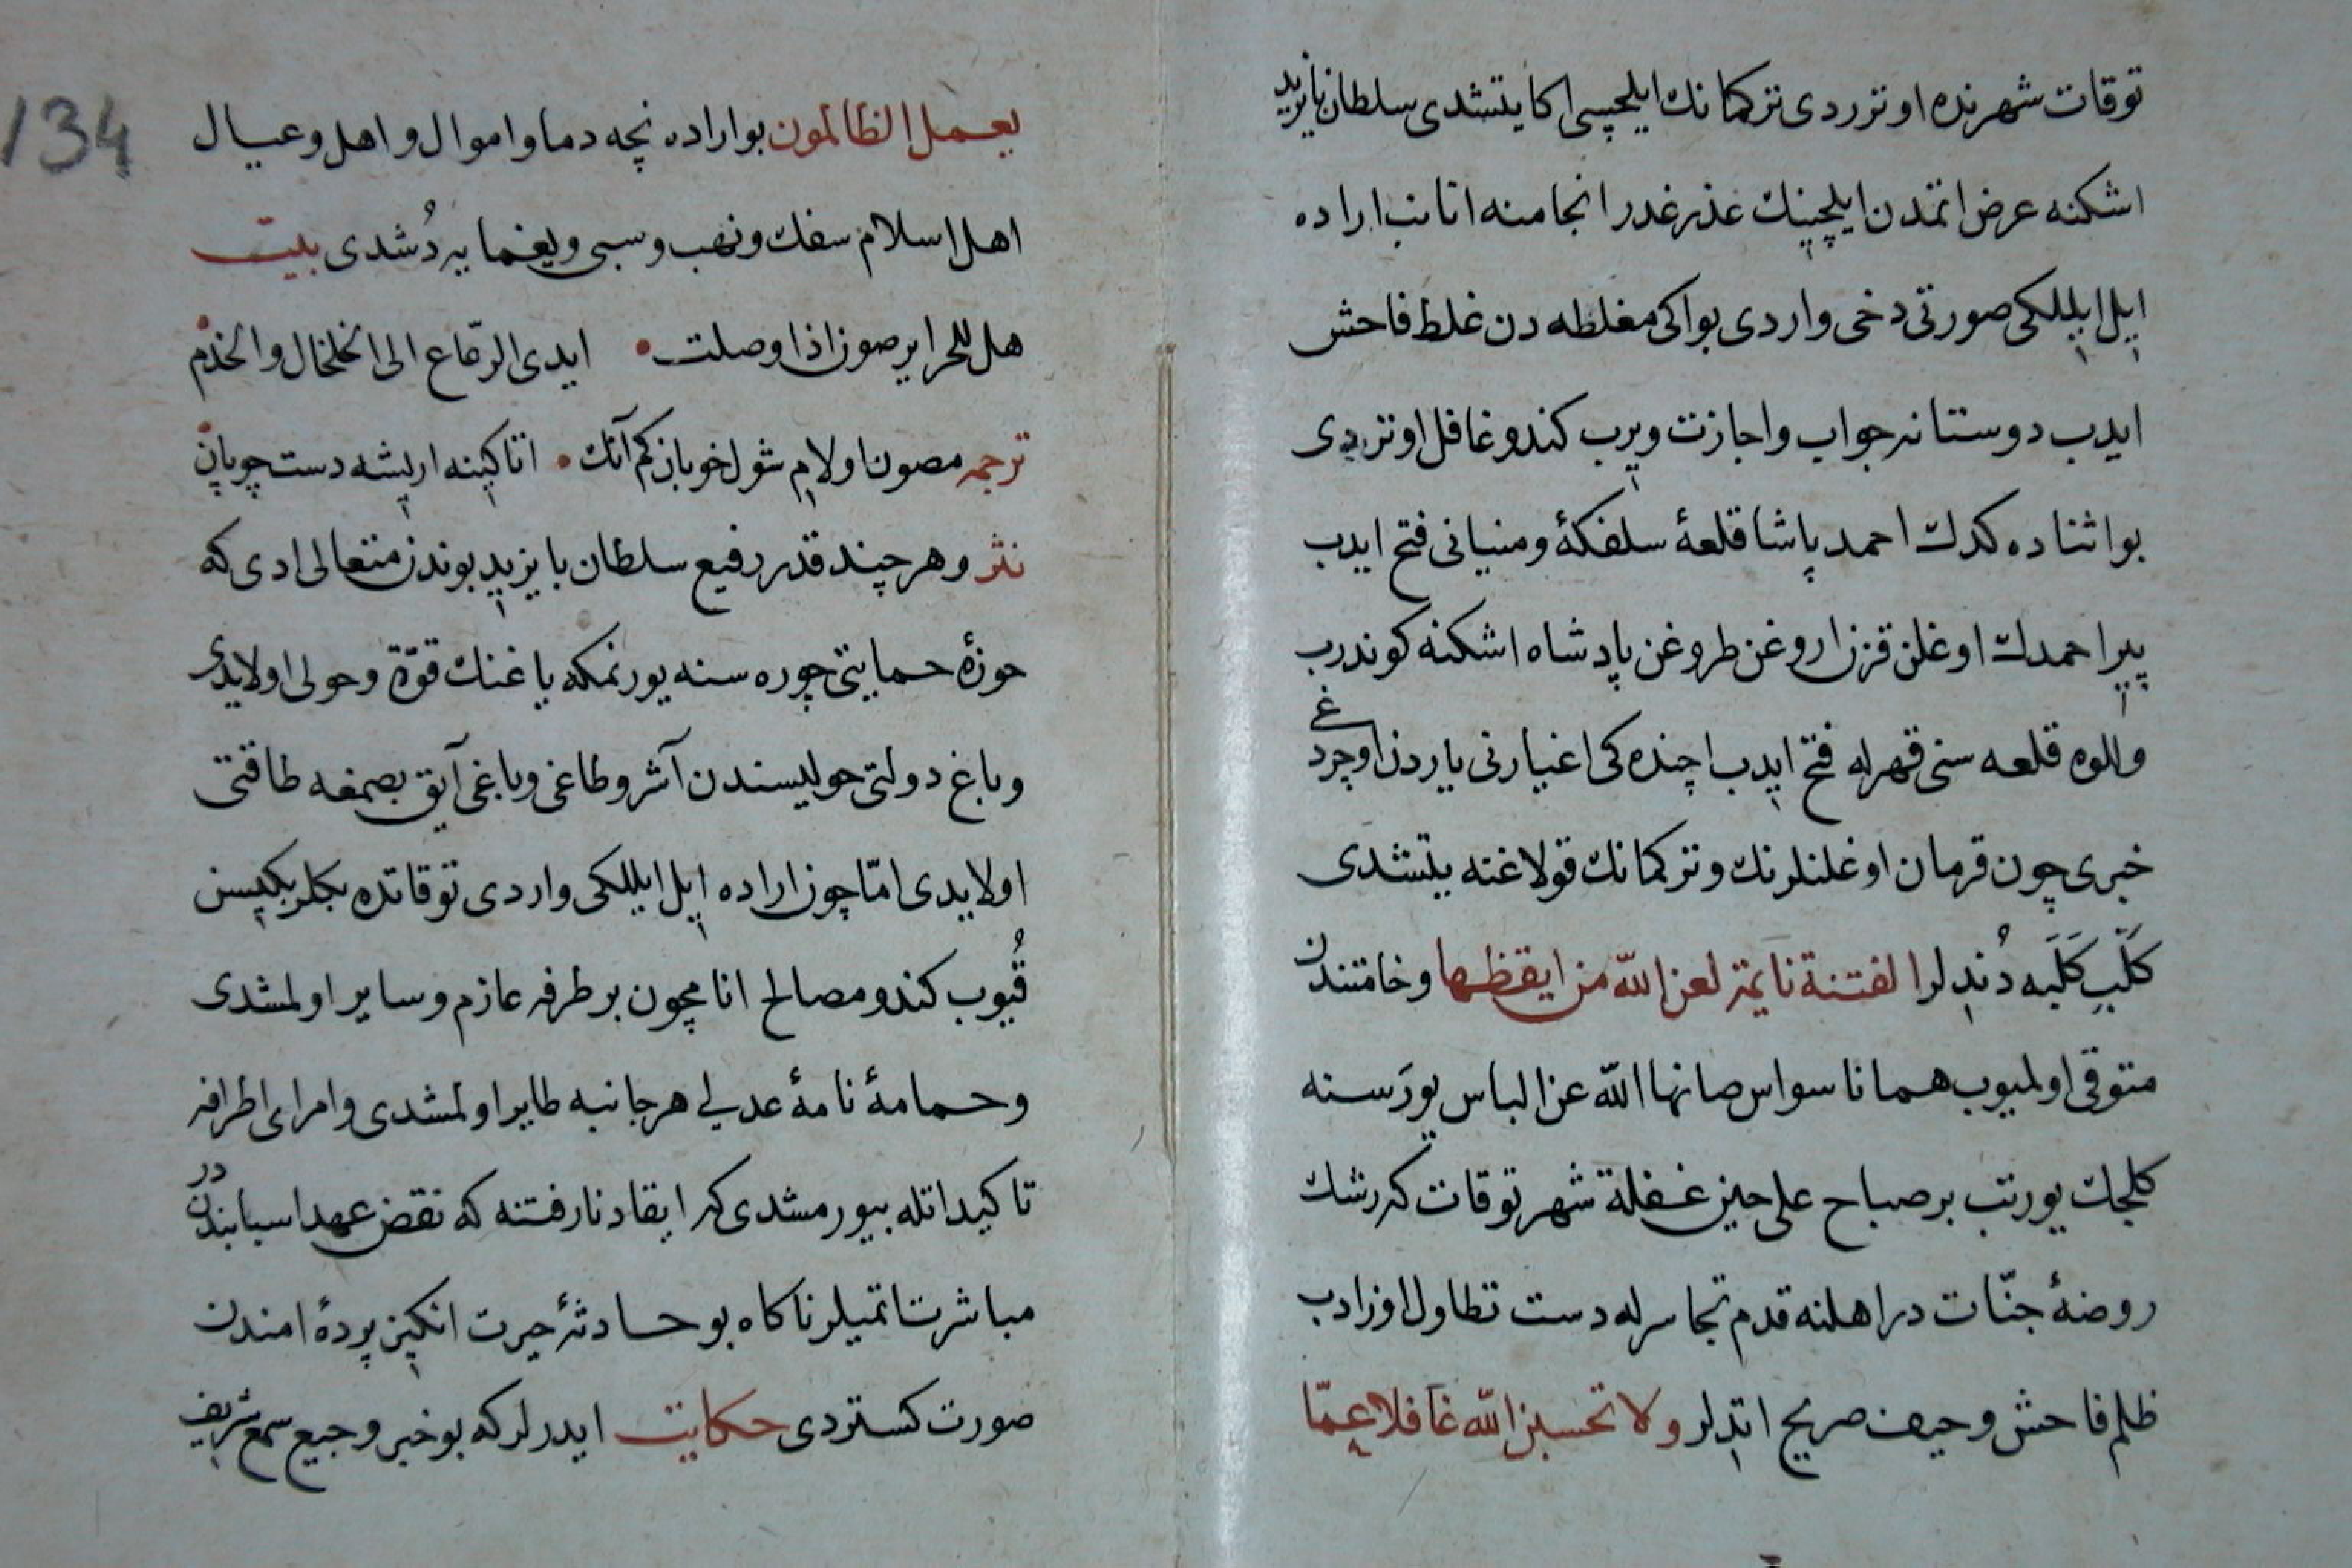 توقات شهرنده اوتوردی ترکمانك ایلچیسی اکا یتشدی سلطان بایزید
اشکنه عرض اتمدن ایلچینك عذر غدر انجامنه انانب اراده
ایل ایللکی صورتی دخی واردی بو اکی مغلطه دن غلط فاحش
ایدب دوستانه جواب و اجازت ویرب کندو غافل اوتردی
بو اثناده کدك احمد پاشا قلعۀ سلفکۀ و منیانی فتح ایدب
پیر احمدك اوغلن قزن اروغن طروغن پادشاه اشکنه کوندرب
والوه قلعه سنی قهرله فتح ایدب اچنده کی اغیارنی یاردن اوچردغی
خبری چون قرمان اوغلنلرنك و ترکمانك قولاغنه یتشدی
کلب کلبه دندلر الفتنة نایمة لعن الله من ایقظها و خامتندن
متوقی اولمیوب همانا سواس صانها الله عن الباس یورسنه
کلجك یورتب بر صباح علی حین غفلة شهر توقات که رشك
روضۀ جنّات در اهلنه قدم تجاسرله دست تطاول اوزادب
ظلم فاحش و حیف صریح اتدلر ولا تحسبن الله غافلا عمّا
یعمل الظالمون بو اراده نچه دما و اموال و اهل و عیال
اهل اسلام سفك و نهب و سبی و یغمایه دُشدی بیت
هل للحرایر صون اذا وصلت • ایدی الرّعاع الی الخلخال والخدم
ترجمه مصون اولام شول خوبان کم آنك • اتاکینه اریشه دست چوپان
نثر و هر چند قدر رفیع سلطان بایزید بوندن متعالی ادی که
حوزۀ حمایتی چوره سنه یورنمکه یاغنك قوّة و حولی اولایدی
و باغ دولتی حولیسندن آشر و طاغی و باغی آیق بصمغه طاقتی
اولایدی امّا چون اراده ایل ایللکی واردی توقاتده بکلربکیسن
قُیوب کندو مصالح انامچون بر طرفه عازم و سایر اولمشدی
و حمامۀ نامۀ عدلی هر جانبه طایر اولمشدی و امرای اطرافه
تاکید اتله بیورمشدی که ایقاد نار فتنه که نقض عهد اسبابندندر
مباشرت اتمیلر ناکاه بو حادثۀ حیرت انکیز پردۀ امندن
صورت کستردی حکایت ایدرلر که بو خبر وجیع سمع شریف